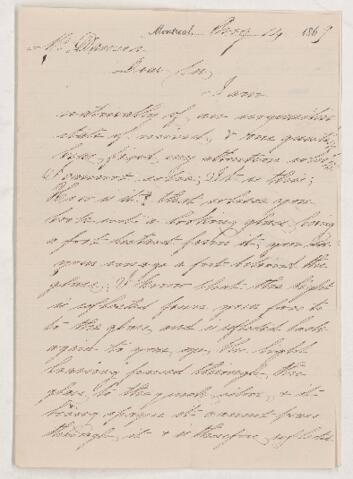 Montreal, Aug 24 1869
Mr Dawson
Dear Sir,
I am
naturally of an inquisitive
state of mind, & one question
has fixed my attention which
I cannot solve; It is this;
How is it? that when you
look into a looking glass, being
a foot distant from it; you see
your image a foot behind the
glass; I know that the light
is reflected from your face to
to the glass, and is reflected back
again to your eye, the light
having passed through, the
glass, to the quick silver, & it
being opaque it cannot pass
through it & is therefore reflected